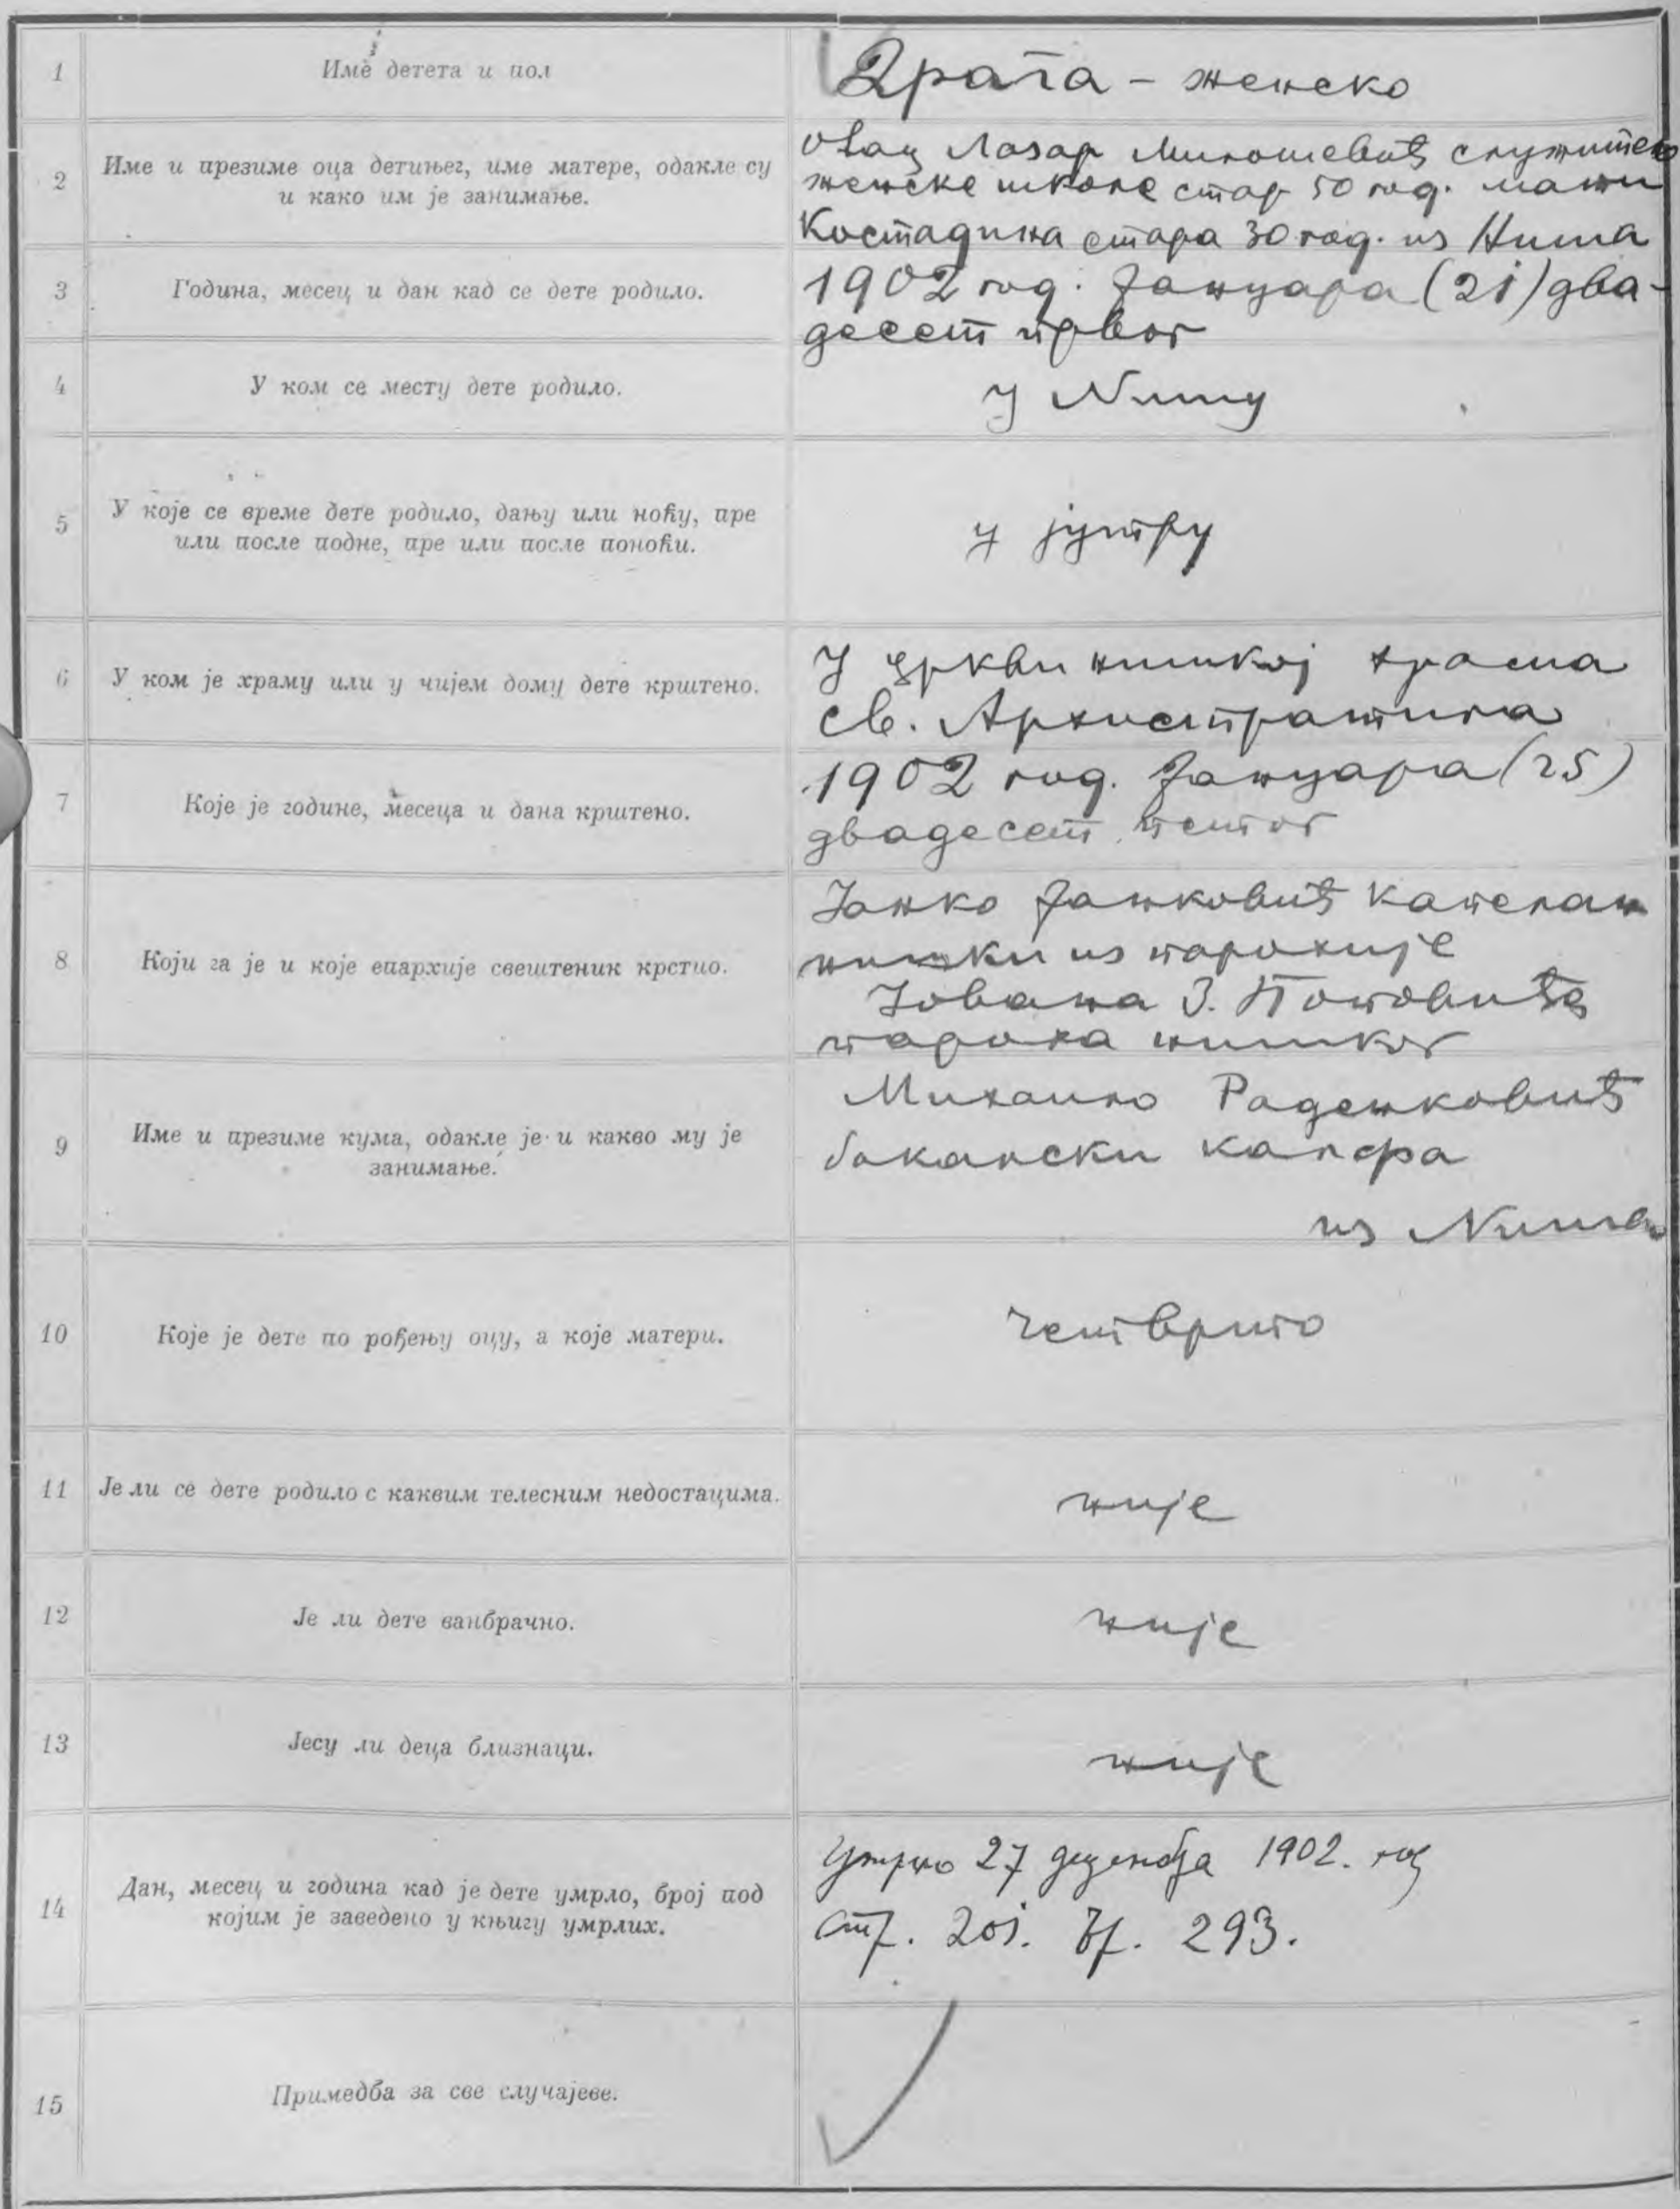 1 Име детета и пол
Драга - женско
2 Име и презиме оца детињег, име матере, одакле су
и како им је занимање.
Отац Лазар Милошевић служитељ
женске школе стар 50 год. мати
Костадина стара 30 год. из Ниша
3 Година, месец и дан кад се дете родило.
1902 год. Јануара (21) два-
десет првог
4 У ком се месту дете родило.
у Нишу
5 У које се време дете родило, дању или ноћу, пре
или после подне, пре или после поноћи.
у јутру
6 У ком је храму или у чијем дому дете крштено.
У цркви нишкој храма
св. Архистратига
7 Које је године, месеца и дана крштено.
1902 год. Јануара (25)
двадесет петог
8 Који га је и које епархије свештеник крстио.
Јанко Јанковић капелан
нишки из парохије
Јована З. Поповића
пароха нишког
9 Име и презиме кума, одакле је и какво му је
занимање.
Михаило Раденковић
бакалски калфа
из Ниша
10 Које је дете по рођењу оцу, а које матери.
четврто
11 Је ли се дете родило с каквим телесним недостацима.
није
12 Је ли дете ванбрачно.
није
13 Јесу ли деца близнаци.
није
14 Дан, месец и година кад је дете умрло, број под
којим је заведено у књигу умрлих.
Умрло 27 децембра 1902. год
стр. 201. Бр. 293.
15 Примедба за све случајеве.